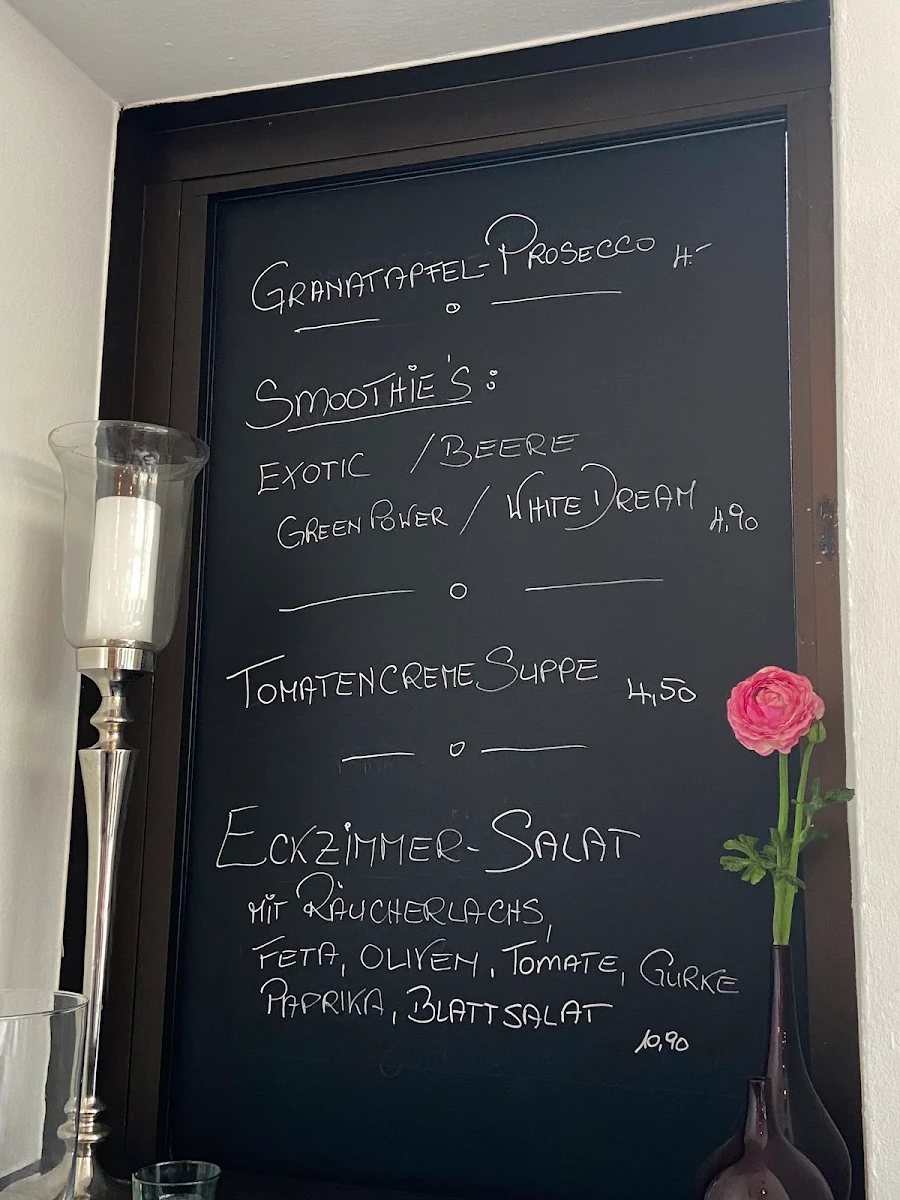 GRANATAPFEL-PROSECCO 4.-
SMOOTHIE'S:
EXOTIC / BEERE
GREEN POWER / WHITE DREAM 4,90
TOMATENCREME SUPPE 4,50
ECKZIMMER-SALAT
MIT RÄUCHERLACHS,
FETA, OLIVEN, TOMATE, GURKE
PAPRIKA, BLATTSALAT
10,90